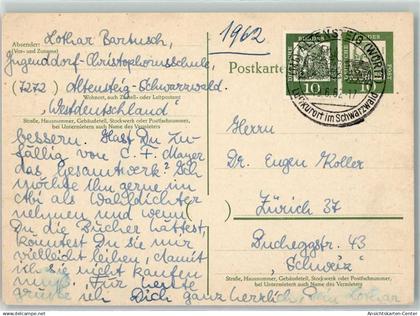 1962
Absender: Lothar Bartusch,
(Vor- und Zuname)
Jugenddorf-Christophorusschule,
(7272) Altensteig-Schwarzwald
Wohnort, auch Zustell- oder Leitpostamt
"Westdeutschland"
Straße, Hausnummer, Gebäudeteil, Stockwerk oder Postfachnummer,
bei Untermietern auch Name des Vermieters
Postkarte
DEUTSCHE BUNDESPOST
10
10
ALTENSTEIG (WÜRTT)
Luftkurort im Schwarzwald
bessern. Hast Du zu-
fällig von C. F. Mayer
das Gesamtwerk? Ich
möchte ihn gerne im
Abi als Wahldichter
nehmen und wenn
Du die Bücher hättest,
könntest Du sie mir
vielleicht leihen, damit
ich sie nicht kaufen
muß. Für heute
grüße ich Dich ganz herzlich, Dein Lothar
Herrn
Dr. Eugen Koller
Zürich 37
Bucheggstr. 43
"Schweiz"
Straße, Hausnummer, Gebäudeteil, Stockwerk oder Postfachnummer,
bei Untermietern auch Name des Vermieters
Ansichtskarten-Center